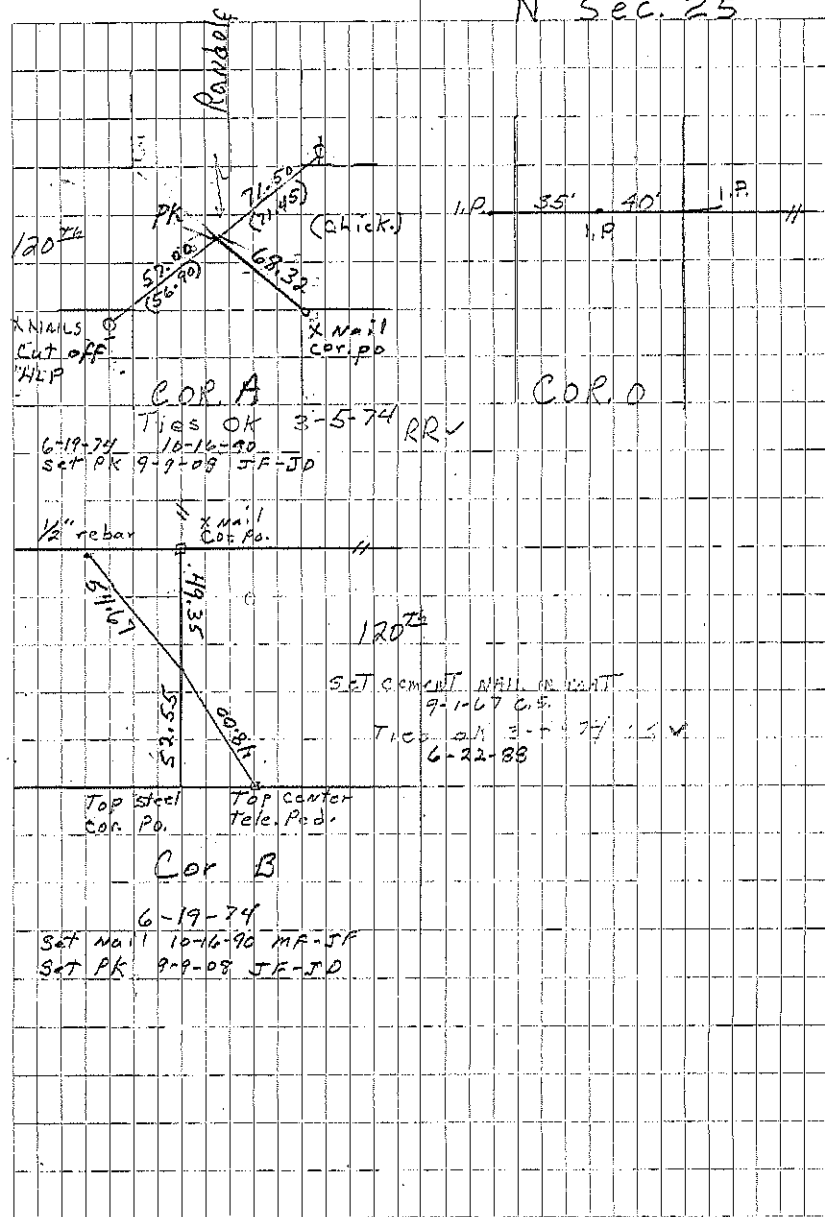 N Sec. 25
Randolf
71.50
(71.45)
(Chick.)
PK
120th
57.00
(56.90)
68.32
X NAILS
Cut off
HLP
X Nail
cor. po
COR. A
Ties OK 3-5-74 RR✓
6-19-74 10-16-90
Set PK 9-9-08 JF-JD
I.P. 35' 40' I.P.
I.P.
COR. O
1/2" rebar
X Nail
Cor. Po.
51.67
49.35
120th
SET CEMENT NAIL IN
9-1-67 C.S.
Ties OK
6-22-88
52.55
48.00
Top steel
cor. Po.
Top center
Tele. Ped.
Cor B
6-19-74
Set Nail 10-16-90 MF-JF
Set PK 9-9-08 JF-JD